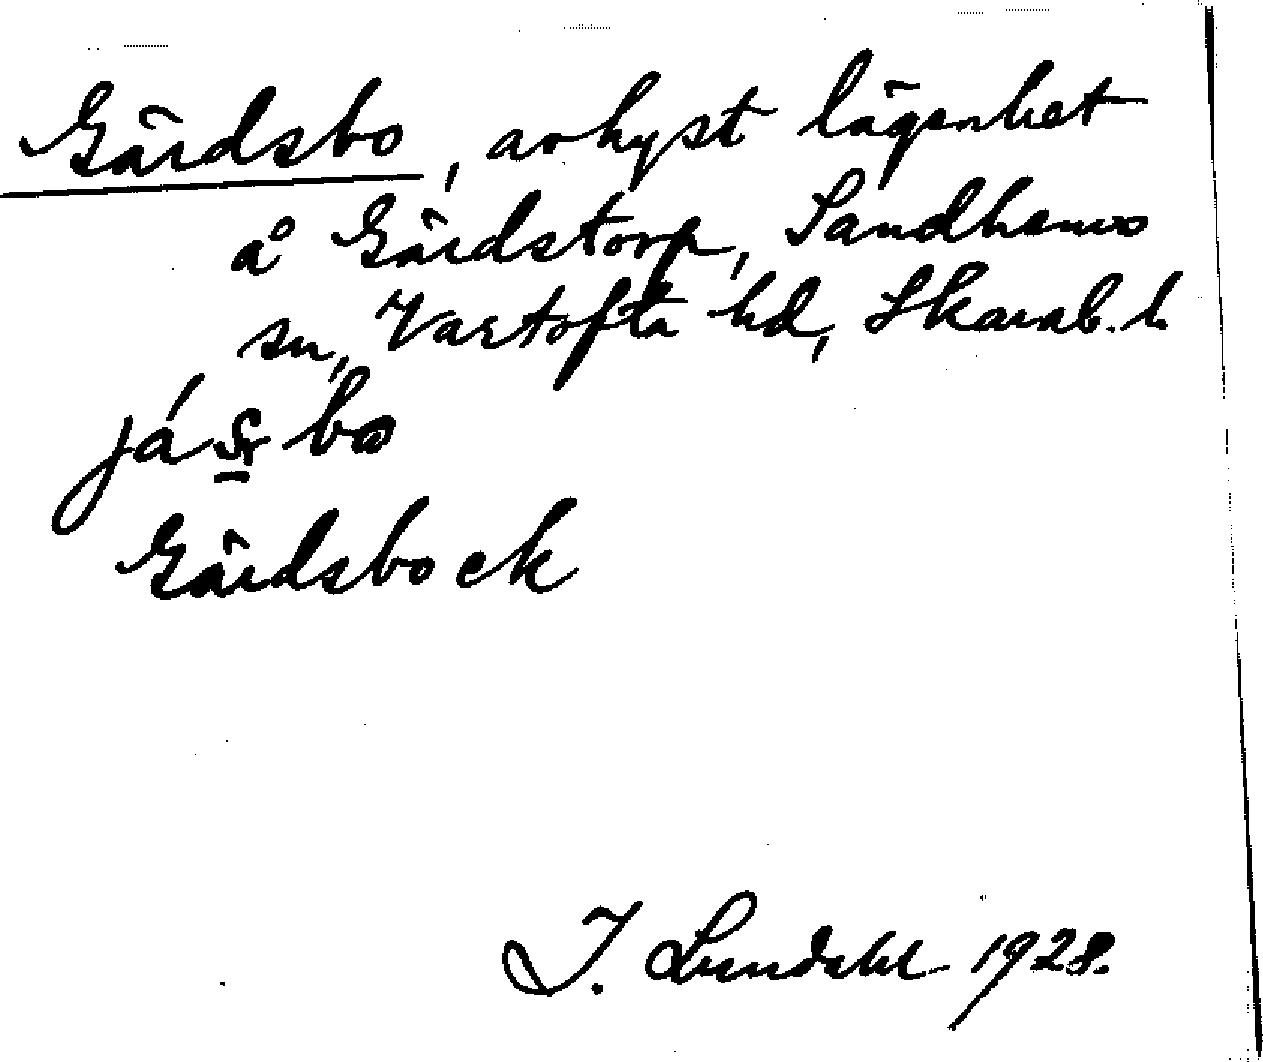 Gärdsbo, avhyst lägenhet
å Gärdstorp, Sandhems
sn, Vartofta hd, Skarab. l.
Gärdsbo ek
I. Lundahl 1928.